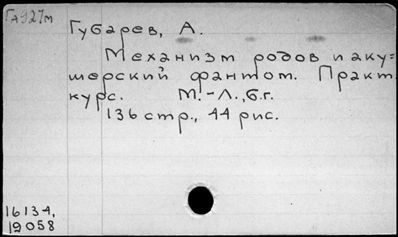 ГА927м
Губарев, А.
Механизм родов и аку=
шерский фантом. Практ.
курс. М.-Л., б.г.
136 стр., 44 рис.
16134,
19058